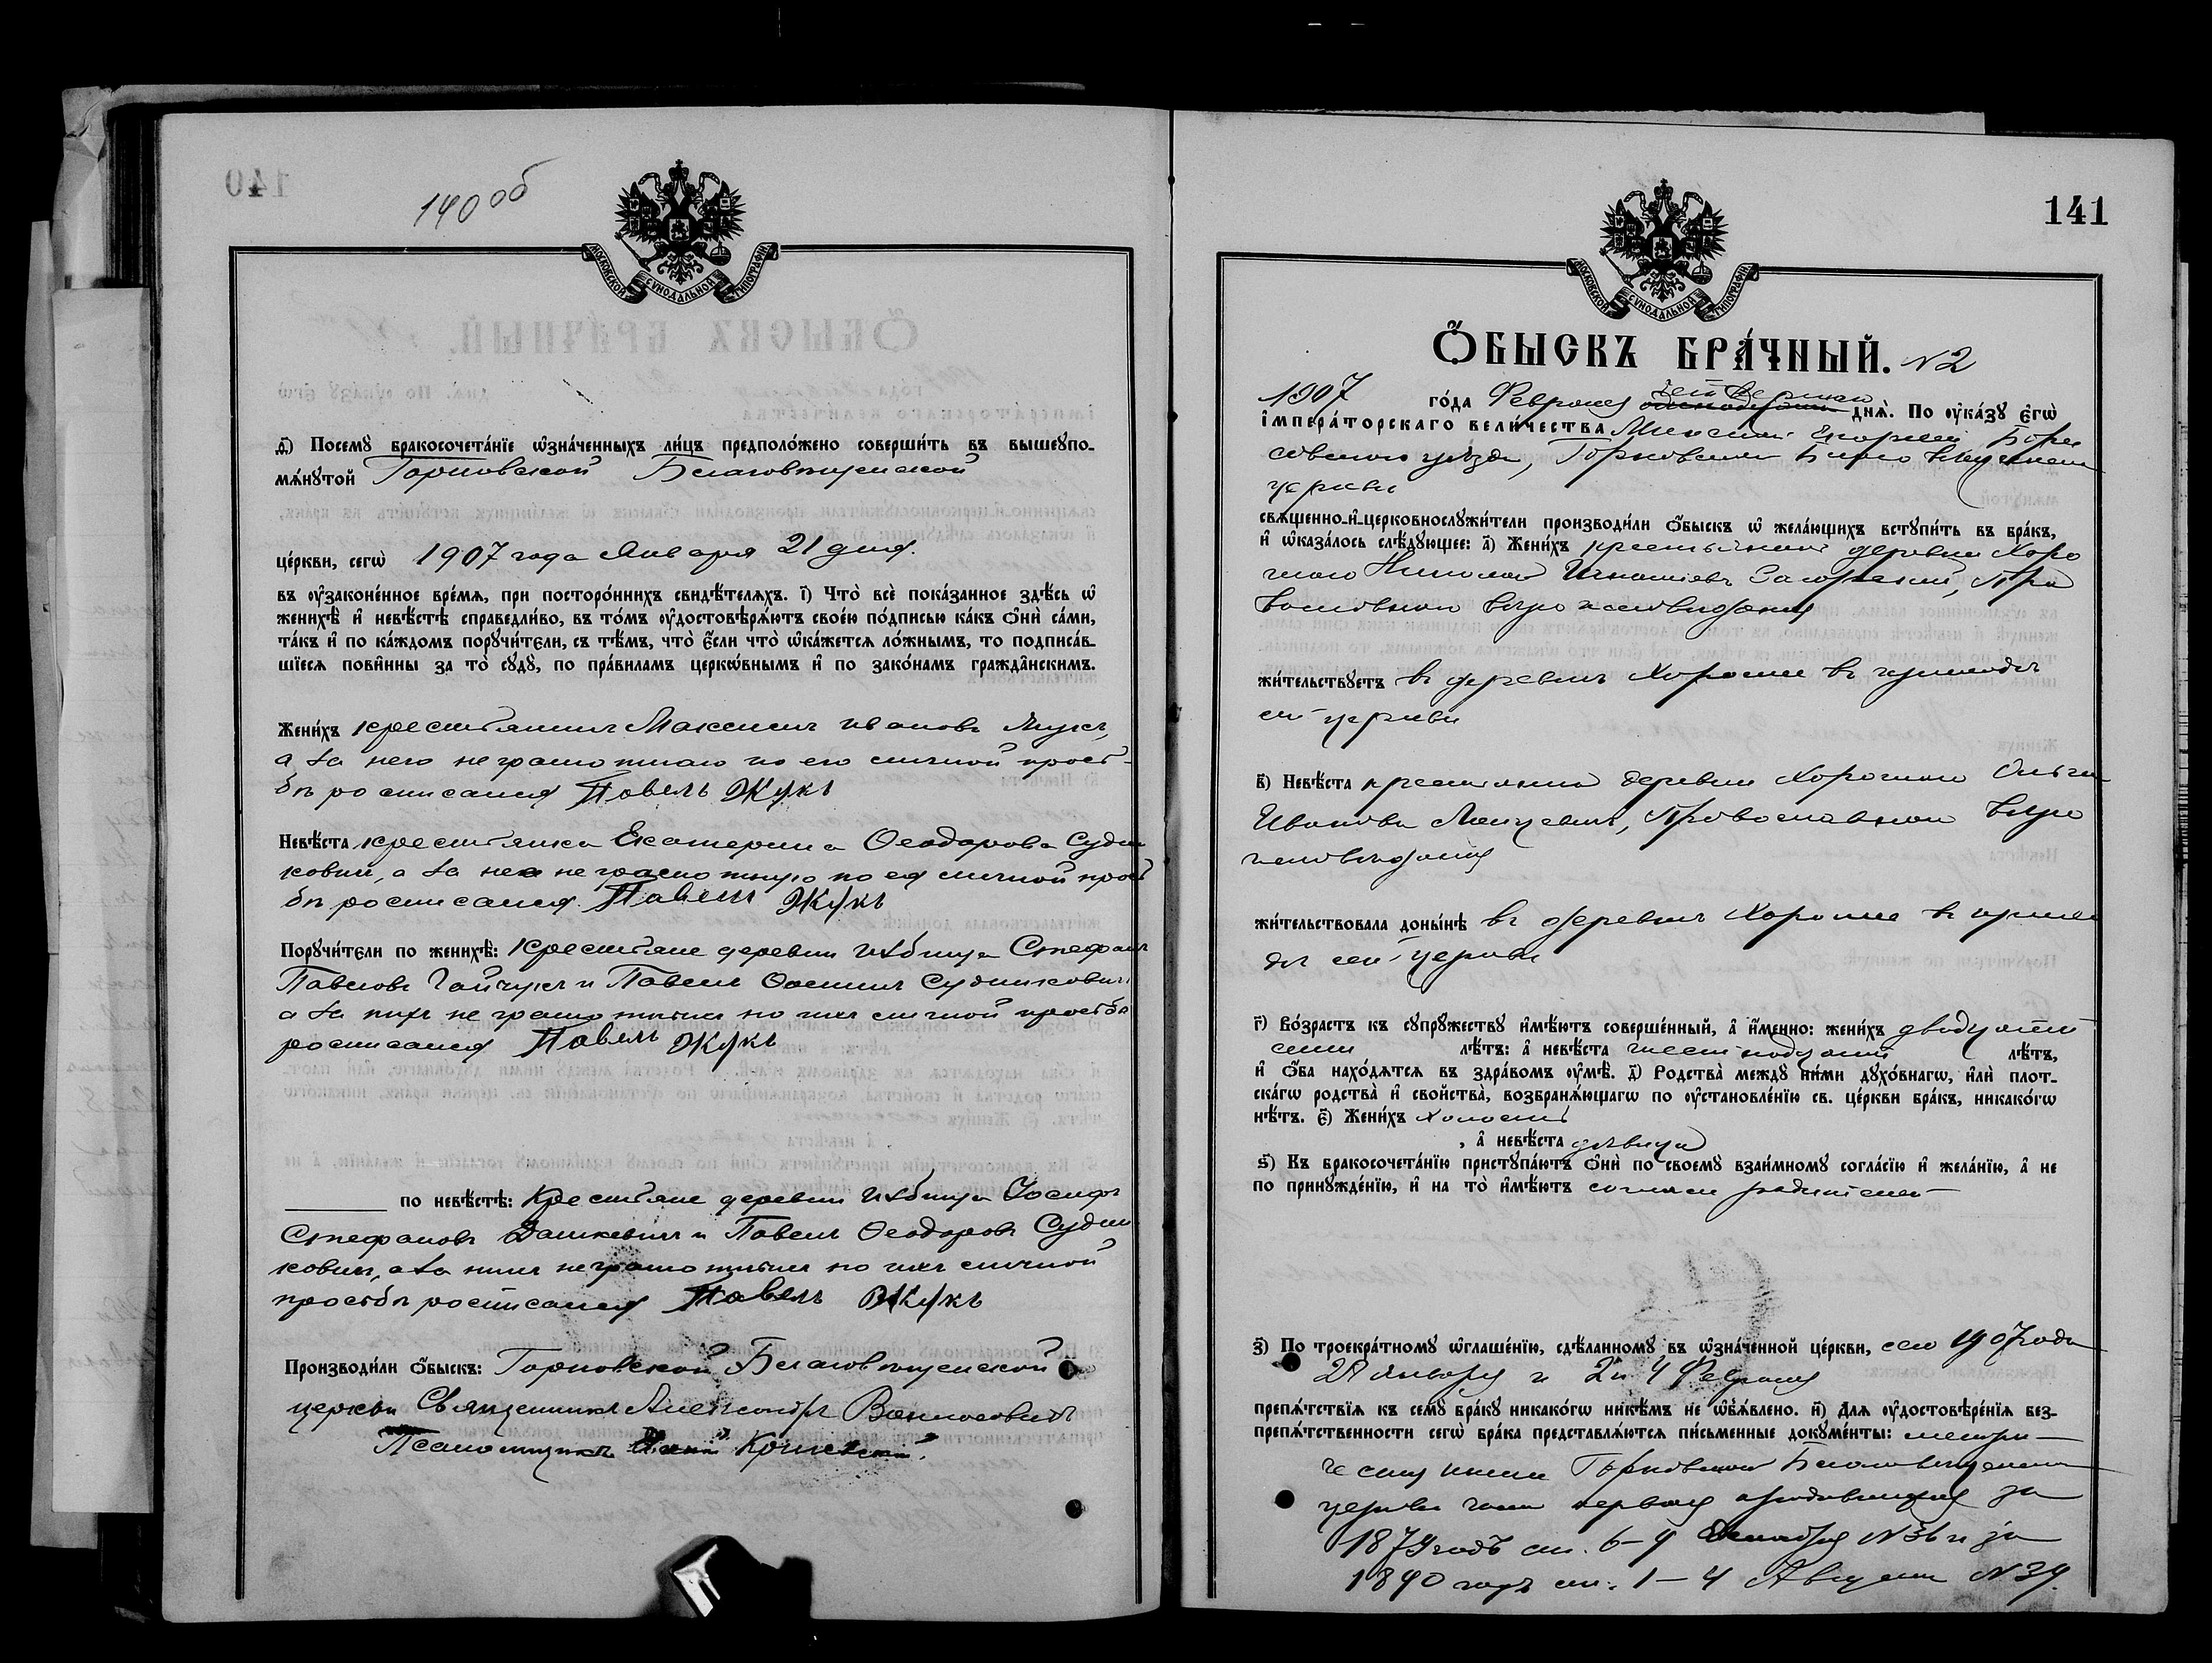 140 об
МОСКОВСКОЙ СѴНОДАЛЬНОЙ ТИПОГРАФІИ
д҃і) Посемꙋ бракосочета́нїе ѡ҆зна́ченныхъ ли́цъ предположено соверши́ть въ вышеупо-
мѧ́нꙋтой Горковской Благовѣщенской
це́ркви, сегѡ̀ 1907 года Января 21 дня.
въ ᲂу҆зако́ненное вре́мѧ, при посторо́ннихъ свидѣ́телѧхъ. і҃) Что̀ всѐ пока́занное здѣ́сь ѡ҆
женихѣ̀ и҆ невѣ́стѣ справедли́во, въ то́мъ ᲂу҆достовѣрѧ́ютъ свое́ю по́дписью ка́къ ѻ҆нѝ са́ми,
та́къ и҆ по ка́ждомъ порꙋчи́тели, съ тѣ́мъ, что̀ є҆́сли что̀ ѡ҆ка́жетсѧ ло́жнымъ, то подписа́в-
шїесѧ пови́нны за то̀ сꙋдꙋ̀, по пра́виламъ церкѡ́внымъ и҆ по зако́намъ гражда́нскимъ.
Жени́хъ крестьянинъ Максимъ Ивановъ Янукъ,
а за него неграмотнаго по его личной прось-
бѣ росписался Павелъ Жукъ
Невѣ́ста крестьянка Екатерина Ѳеодорова Судни
ковичъ, а за нее неграмотную по ея личной прось
бѣ росписался Павелъ Жукъ
Порꙋчи́тели по женихѣ̀: Крестьяне деревни Избища Стефанъ
Павловъ Гайчукъ и Павелъ Судниковичъ
а за нихъ неграмотныхъ по ихъ личной просьбѣ
росписался Павелъ Жукъ
по невѣ́стѣ: Крестьяне деревни Избища Іосифъ
Стефановъ Дашкевичъ и Павелъ Ѳеодоровъ Судни
ковичъ, а за нихъ неграмотныхъ по ихъ личной
просьбѣ росписался Павелъ Жукъ
Производи́ли ѻ҆́быскъ: Горковской Благовѣщенской
церкви Священникъ Александръ
Псаломщикъ
141
МОСКОВСКОЙ СѴНОДАЛЬНОЙ ТИПОГРАФІИ
Ѻ҆БЫСКЪ БРА́ЧНЫЙ. N 2
1907 го́да Февраля четвертаго днѧ̀. По ᲂу҆ка́зꙋ є҆гѡ̀
і҆мпера́торскаго вели́чества Минской Епархіи Бори
совскаго уѣзда, Горковской Благовѣщенской
церкви
свѧще́нно-и҆-церковнослꙋжи́тели производи́ли ѻ҆́быскъ ѡ҆ жела́ющихъ встꙋпи́ть въ бра́къ,
и҆ ѡ҆каза́лось слѣ́дꙋющее: а҃) Жени́хъ крестьянинъ деревни Хоро
шаго Николай Игнатіевъ Загорскій, Пра
вославнаго вѣроисповѣданія
жи́тельствꙋетъ въ деревнѣ Хорошее въ приходѣ
сей церкви
в҃) Невѣ́ста крестьянка деревни Хорошаго Ольга
Иванова, Православнаго вѣро
исповѣданія
жи́тельствовала доны́нѣ въ деревнѣ Хорошее въ прихо
дѣ сей церкви
г҃) Во́зрастъ къ сꙋпрꙋ́жествꙋ и҆мѣ́ютъ соверше́нный, а҆ и҆́менно: жени́хъ двадцати
семи лѣ́тъ: а҆ невѣ́ста шестнадцати лѣ́тъ,
и҆ ѻ҆́ба нахо́дѧтсѧ въ здра́вомъ ᲂу҆мѣ̀. д҃) Родства̀ междꙋ̀ ни́ми дꙋхо́внагѡ, и҆лѝ плот-
ска́гѡ родства̀ и҆ сво́йства̀, возбранѧ́ющагѡ по ᲂу҆становле́нїю св. це́ркви бра́къ, никако́гѡ
нѣ́тъ. є҃) Жени́хъ холостъ
, а҆ невѣ́ста дѣвица
ѕ҃) Къ бракосочета́нїю пристꙋпа́ютъ ѻ҆нѝ по своемꙋ̀ взаи́мномꙋ согла́сїю и҆ жела́нїю, а҆ не
по принꙋжде́нїю, и҆ на то̀ и҆мѣ́ютъ согласіе родителей
з҃) По троекра́тномꙋ ѡ҆глаше́нїю, сдѣ́ланномꙋ въ ѡ҆зна́ченной це́ркви, сего 1907 года
28 Января и 2 и 4 Февраля
препѧ́тствїѧ къ семꙋ̀ бра́кꙋ никако́гѡ нике́мъ не ѡ҆б̾ѧ́влено. и҃) Длѧ ᲂу҆достовѣре́нїѧ без-
препѧ́тственности сегѡ̀ бра́ка представлѧ́ютсѧ пи́сьменные докꙋме́нты: метри-
ческія книги Горковской Благовѣщенской
церкви часть первая о родившихся за
1879 годъ ст. 6-9 Декабря N 36 и за
1890 годъ ст. 1-4 Августа N 39.